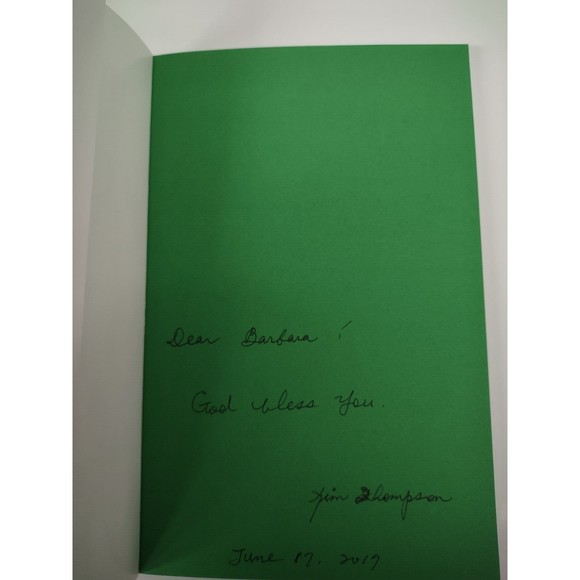 Dear Barbara!
God bless you.
Kim Thompson
June 17. 2019